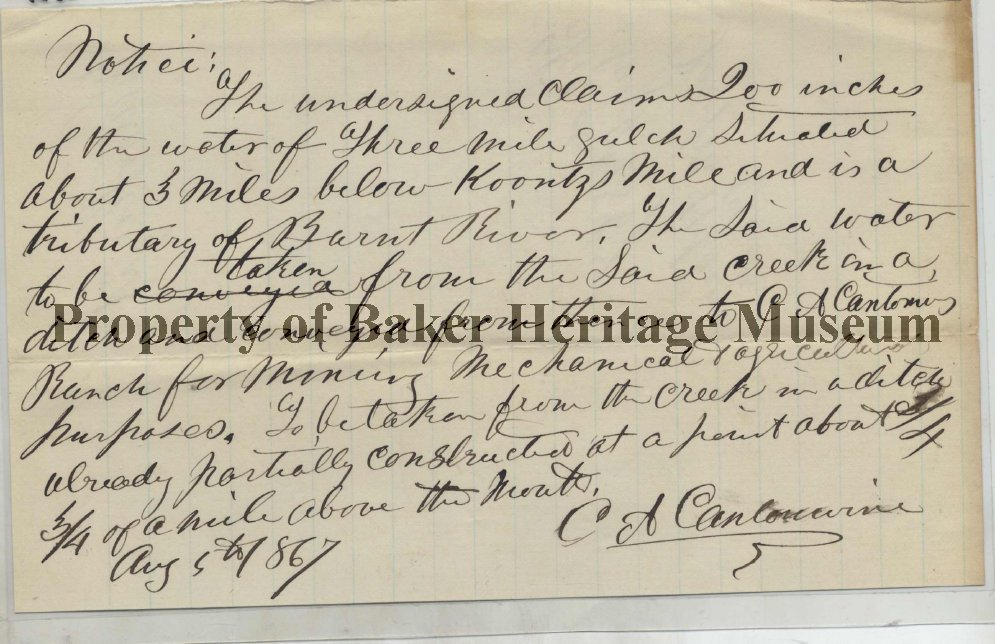 Notice:
The undersigned Claims 200 inches
of the water of Three mile gulch Situated
about 3 Miles below Koontzs Mile and is a
tributary of Burnt River. The Said water
taken
to be conveyed from the Said creek in a
ditch and conveyed from thence to C A
Property of Baker Heritage Museum
Ranch for Mining Mechanical & agricultural
purposes. To be taken from the creek in a ditch
already partially constructed at a point about 3/4
3/4 of a mile above the Mouth.
C A Cantonwine
Aug 5th 1867